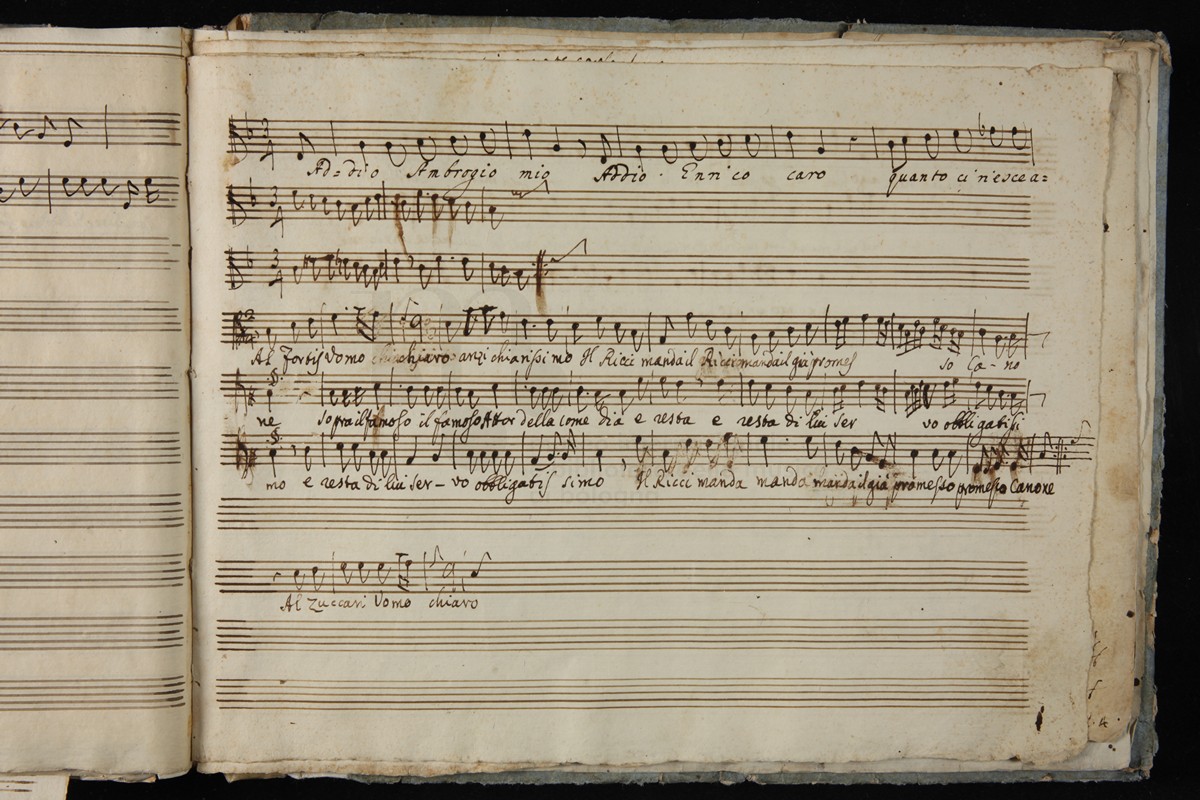 Ad=dio Ambrogio mio Addio. Enrico caro quanto ci n'esce a=
Al Fortis Vomo chiaro anzi chiarissimo Il Ricci manda il Ricci manda il già promes so Ca-no
ne sopra il famoso il famoso Attor della come dia e resta e resta di lui ser vo obbligatissi
mo e resta di lui ser-vo obbligatis simo Il Ricci manda manda manda il già promesso promesso Canone
Al Zuccari Vomo chiaro